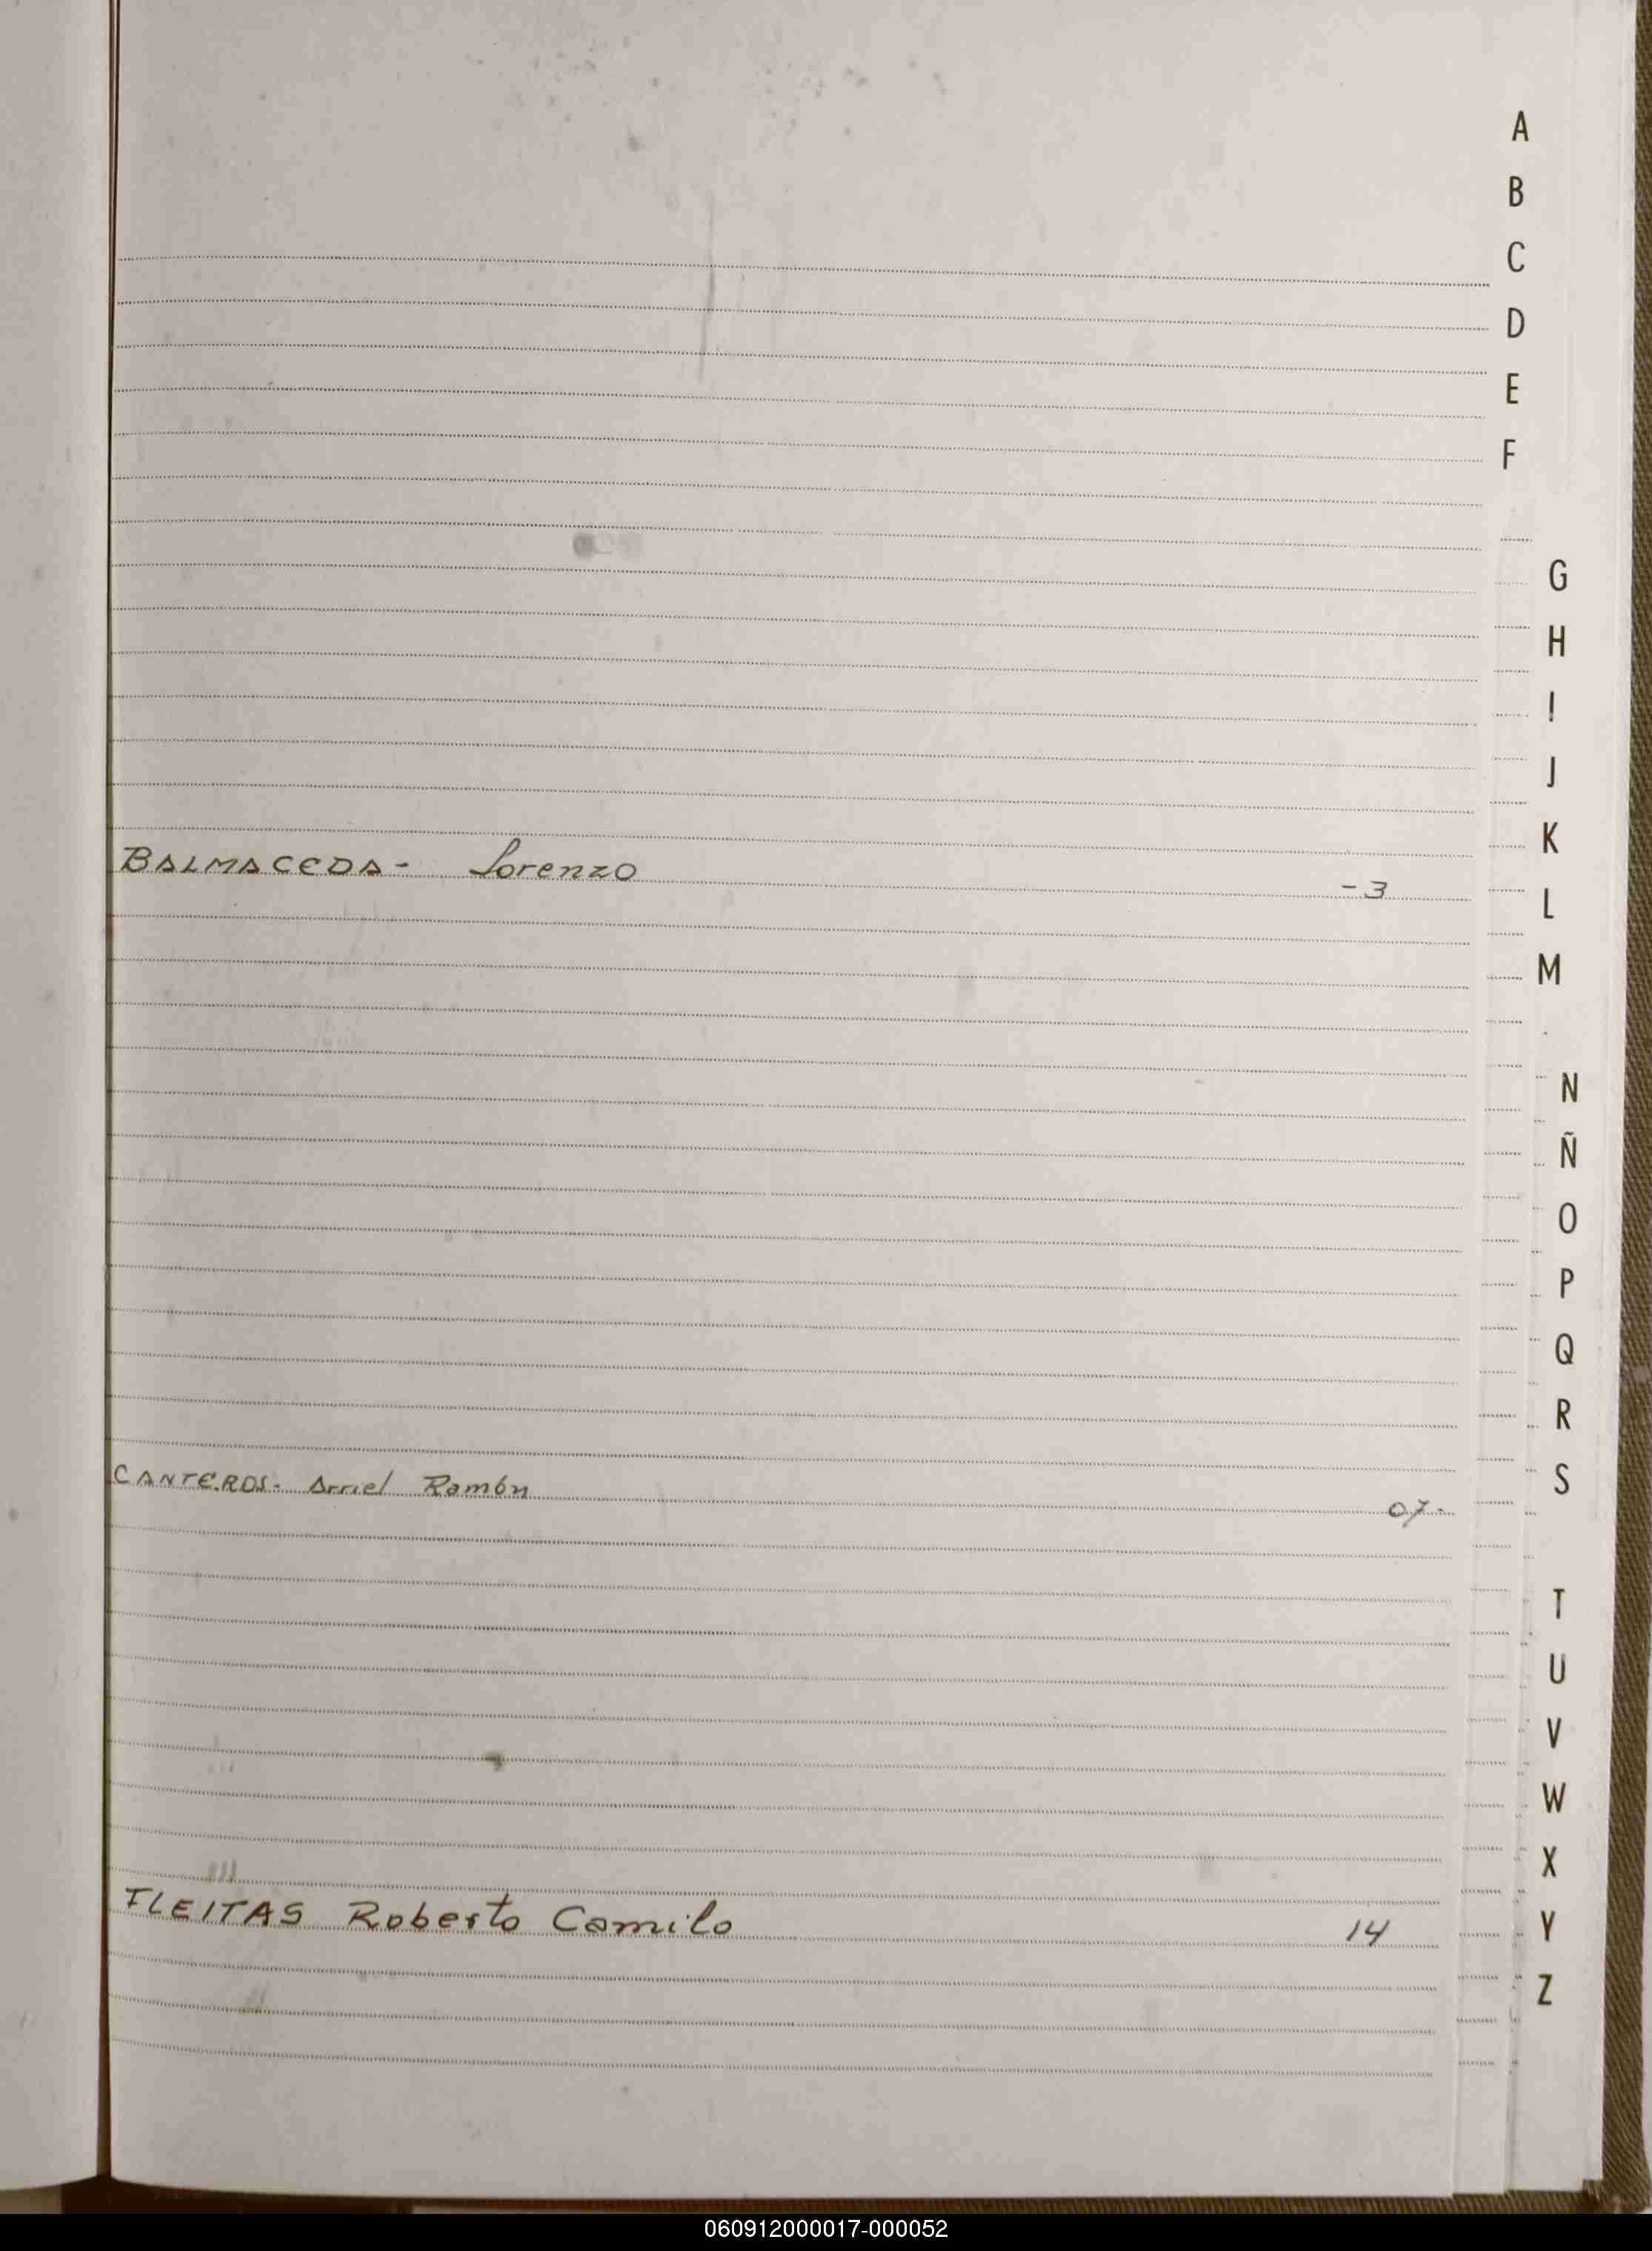 A
B
C
D
E
F
G
H
I
J
K
BALMACEDA- Lorenzo -3
L
M
N
Ñ
O
P
Q
R
CANTEROS- Arriel Ramón 07-
S
T
U
V
W
X
FLEITAS Roberto Camilo 14
Y
Z
060912000017-000052